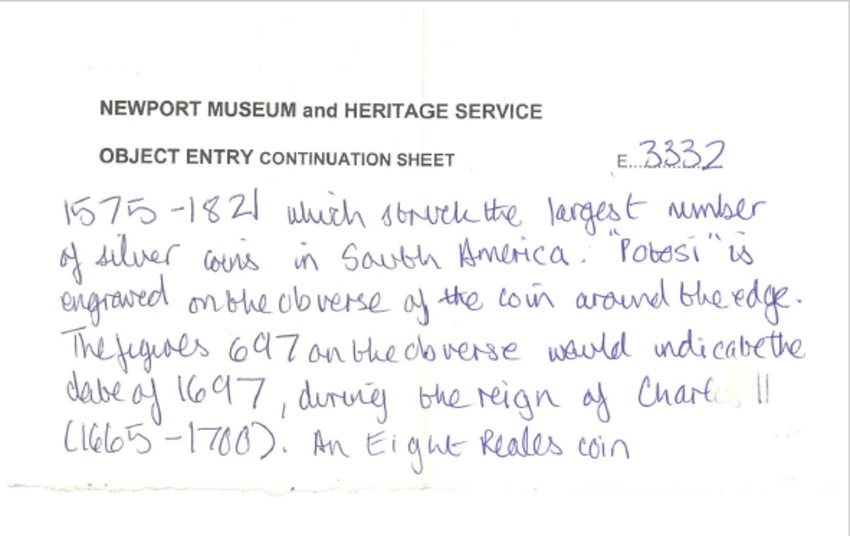 NEWPORT MUSEUM and HERITAGE SERVICE
OBJECT ENTRY CONTINUATION SHEET E...3332
1575-1821 which struck the largest number
of silver coins in South America. "Potosi" is
engraved on the obverse of the coin around the edge.
The figures 697 on the obverse would indicate the
date of 1697, during the reign of Charles II
(1665-1700). An Eight Reales coin